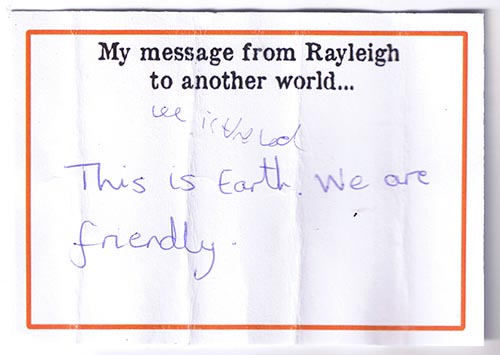 My message from Rayleigh
to another world...
we
This is Earth. We are
friendly.